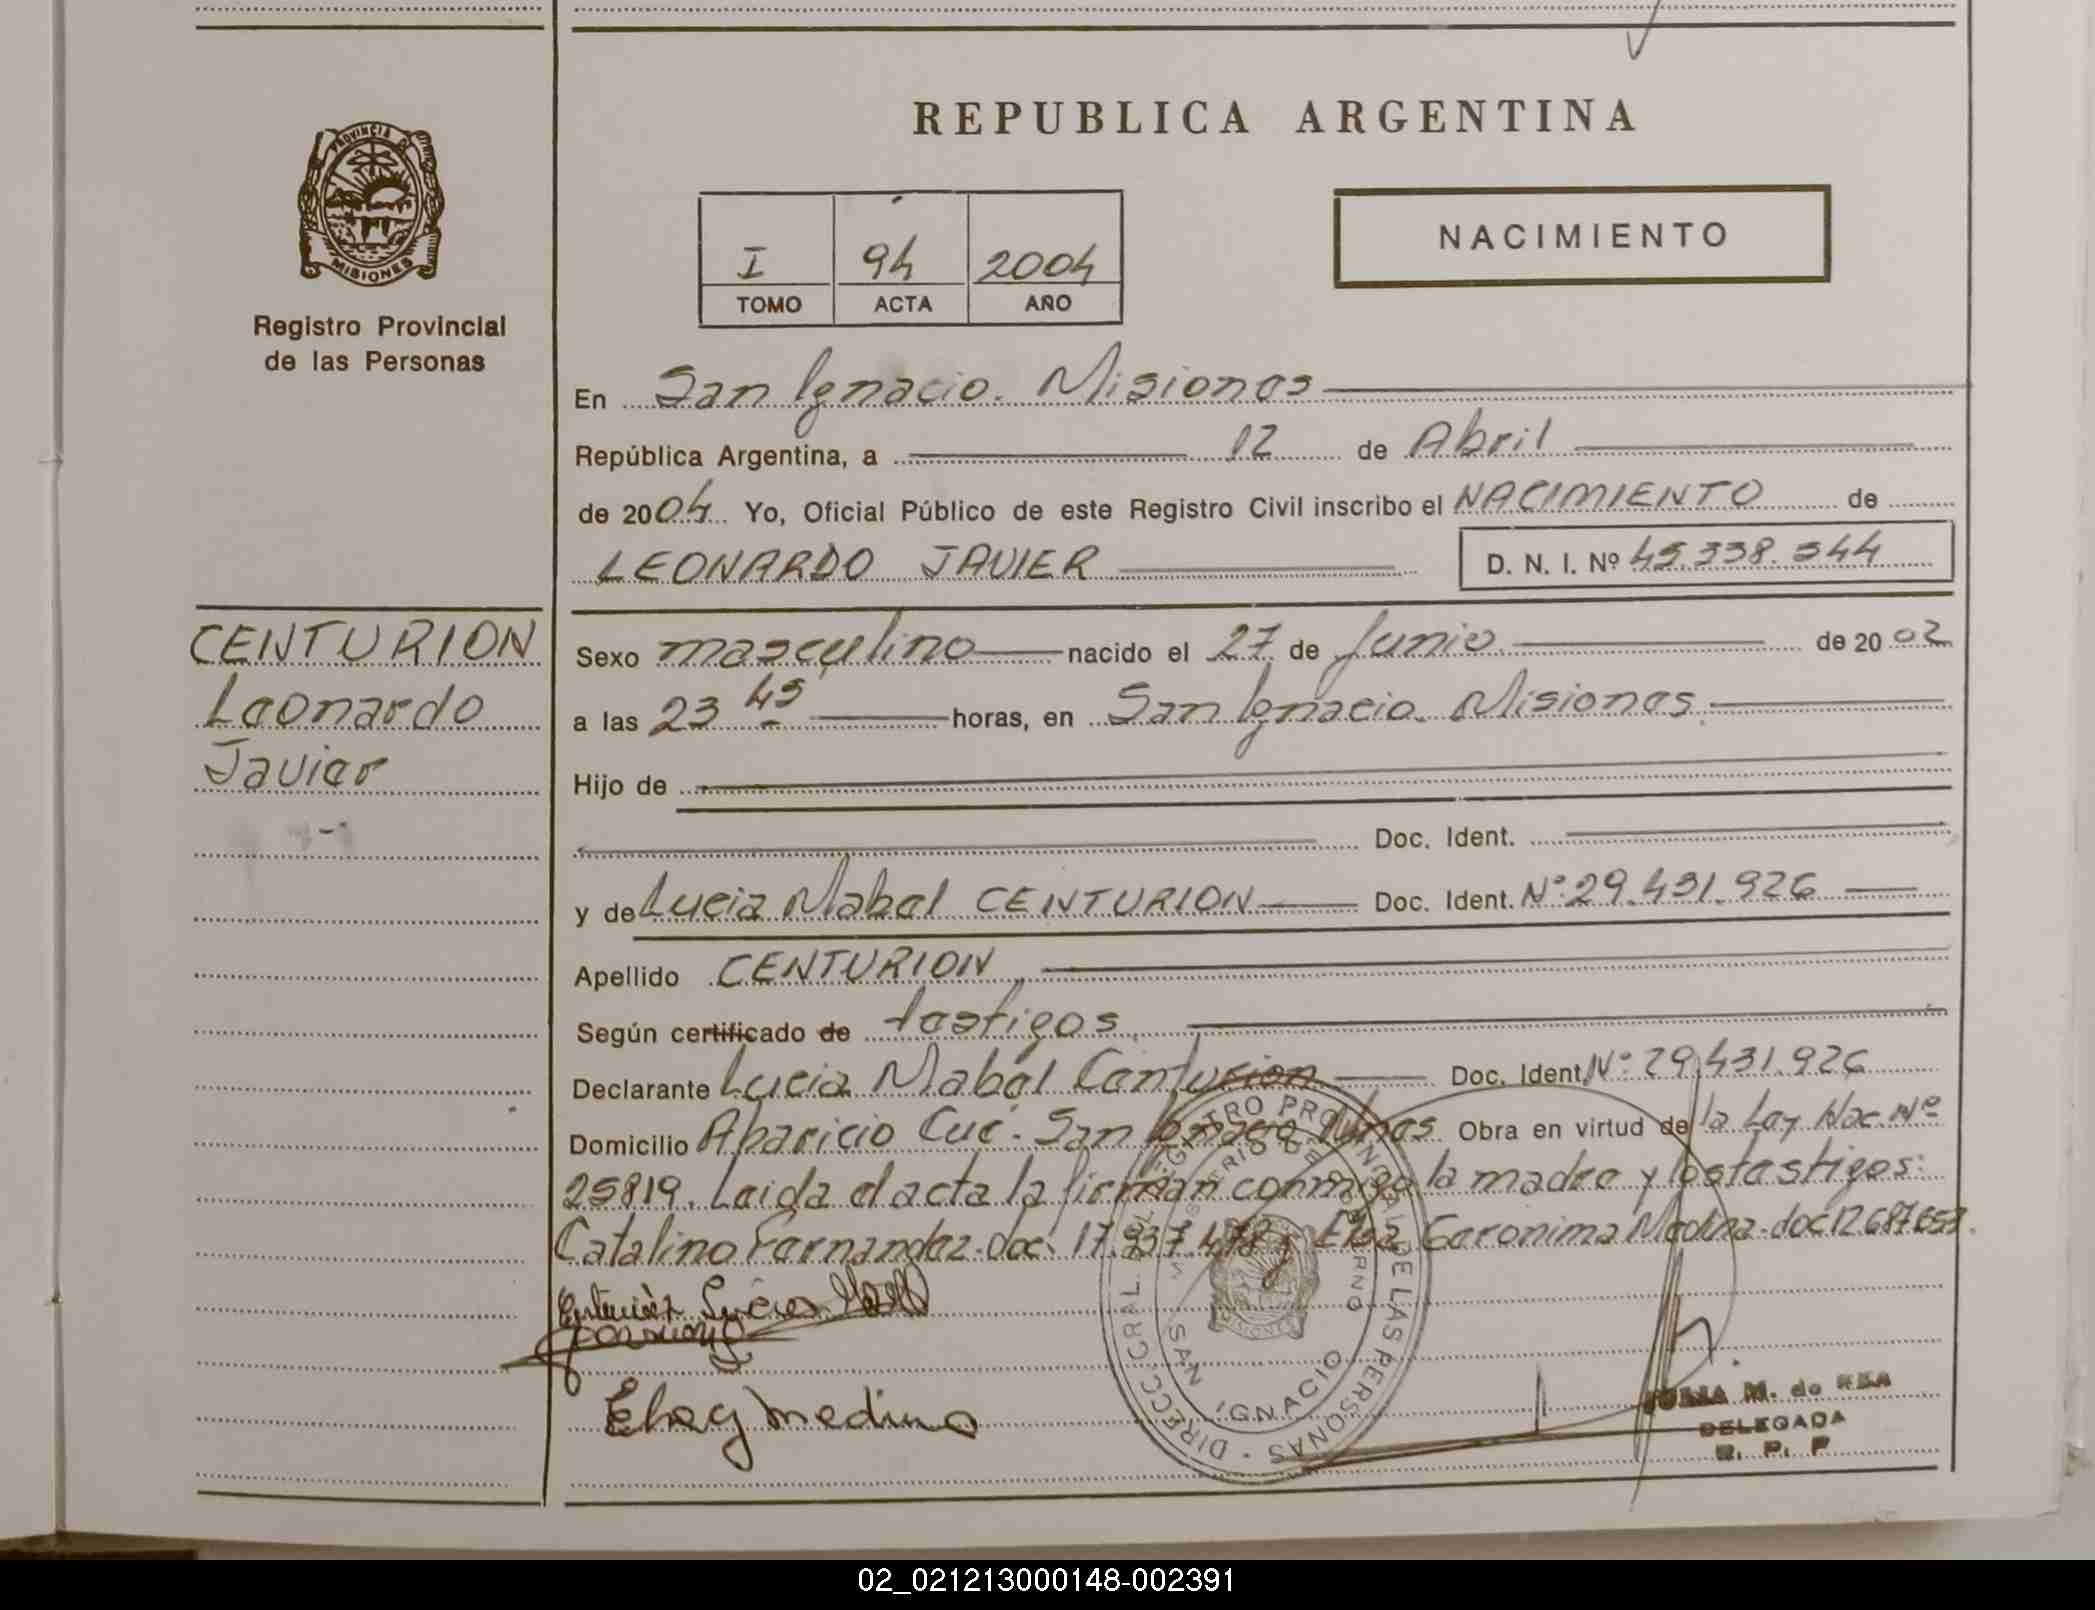 REPUBLICA ARGENTINA
PROVINCIA DE
MISIONES
Registro Provincial
de las Personas
I 94 2004
TOMO ACTA AÑO
NACIMIENTO
En San Ignacio. Misiones
República Argentina, a 12 de Abril
de 2004 Yo, Oficial Público de este Registro Civil inscribo el NACIMIENTO de
LEONARDO JAVIER D. N. I. Nº 45.338.544
CENTURION
Leonardo
Javier
Sexo masculino nacido el 27 de Junio de 2002
a las 23 45 horas, en San Ignacio. Misiones
Hijo de
Doc. Ident.
y de Lucia Mabel CENTURION Doc. Ident. Nº: 29.431.926
Apellido CENTURION
Según certificado de testigos
Declarante Lucia Mabel Centurion Doc. Ident. Nº: 29.431.926
Domicilio Aparicio Cué. San Ignacio Mnes Obra en virtud de la Ley Nac. Nº
25819. Leida el acta la firman conmigo la madre y los testigos:
Catalino Fernandez. doc. 17.937.478 y Elsa Geronima Medina. doc 12.687.653.
DIRECC. GRAL. DEL REGISTRO PROVINCIAL DE LAS PERSONAS
MINISTERIO DE GOBIERNO
SAN IGNACIO
Medina
JULIA M. de REA
DELEGADA
R. P. P
02_021213000148-002391